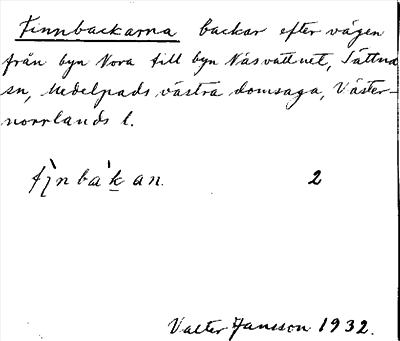 Finnbackarna backar efter vägen
från byn Nora till byn Näsvattnet, Sättna
sn, Medelpads västra domsaga, Väster-
norrlands l.
2
Valter Jansson 1932.